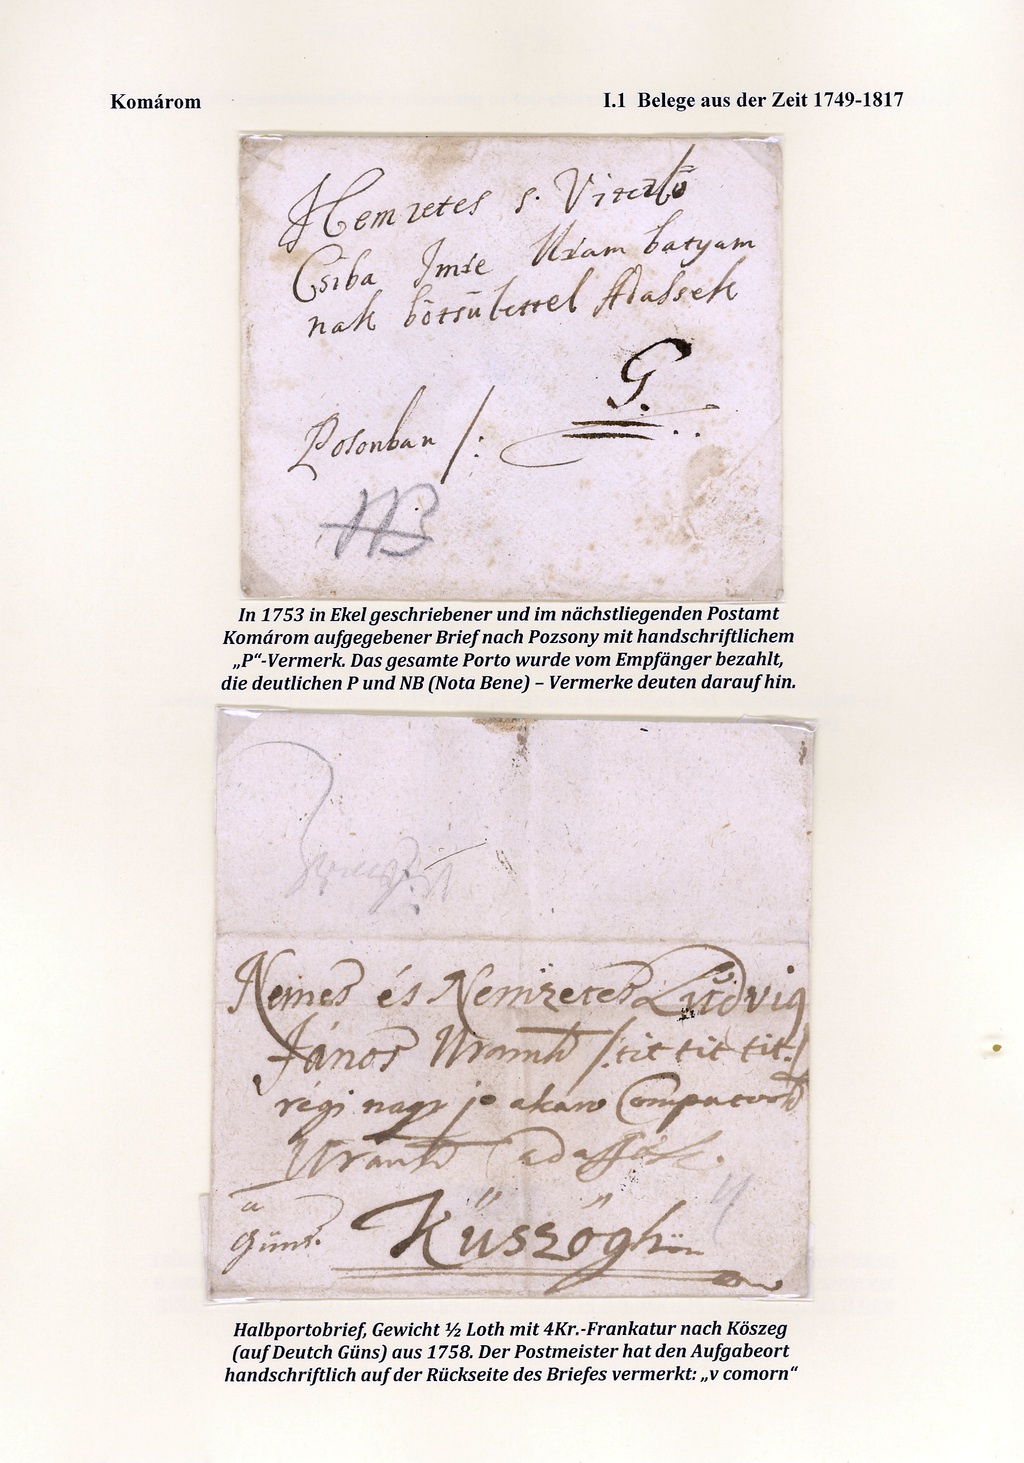 Komárom
I.1 Belege aus der Zeit 1749-1817
Nemzetes s. Vitezlö
Csiba Imre Uram batyam
nak bötsülettel Adassek
G.
Posonban /:
NB
In 1753 in Ekel geschriebener und im nächstliegenden Postamt
Komárom aufgegebener Brief nach Pozsony mit handschriftlichem
„P“-Vermerk. Das gesamte Porto wurde vom Empfänger bezahlt,
die deutlichen P und NB (Nota Bene) – Vermerke deuten darauf hin.
Nemes és Nemzetes Ludvig
János Uramk /: tit tit tit:/
régi nagy jo akaro
Uramk adassék.
a
Güns.
Küszöghön
4
Halbportobrief, Gewicht ½ Loth mit 4Kr.-Frankatur nach Köszeg
(auf Deutch Güns) aus 1758. Der Postmeister hat den Aufgabeort
handschriftlich auf der Rückseite des Briefes vermerkt: „v comorn“